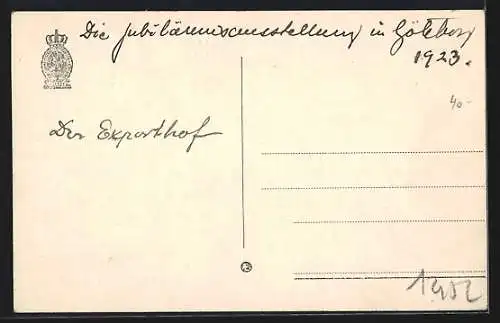 Die Jubiläumsausstellung in Göteborg
1923.
40-
Der Exporthof
1452